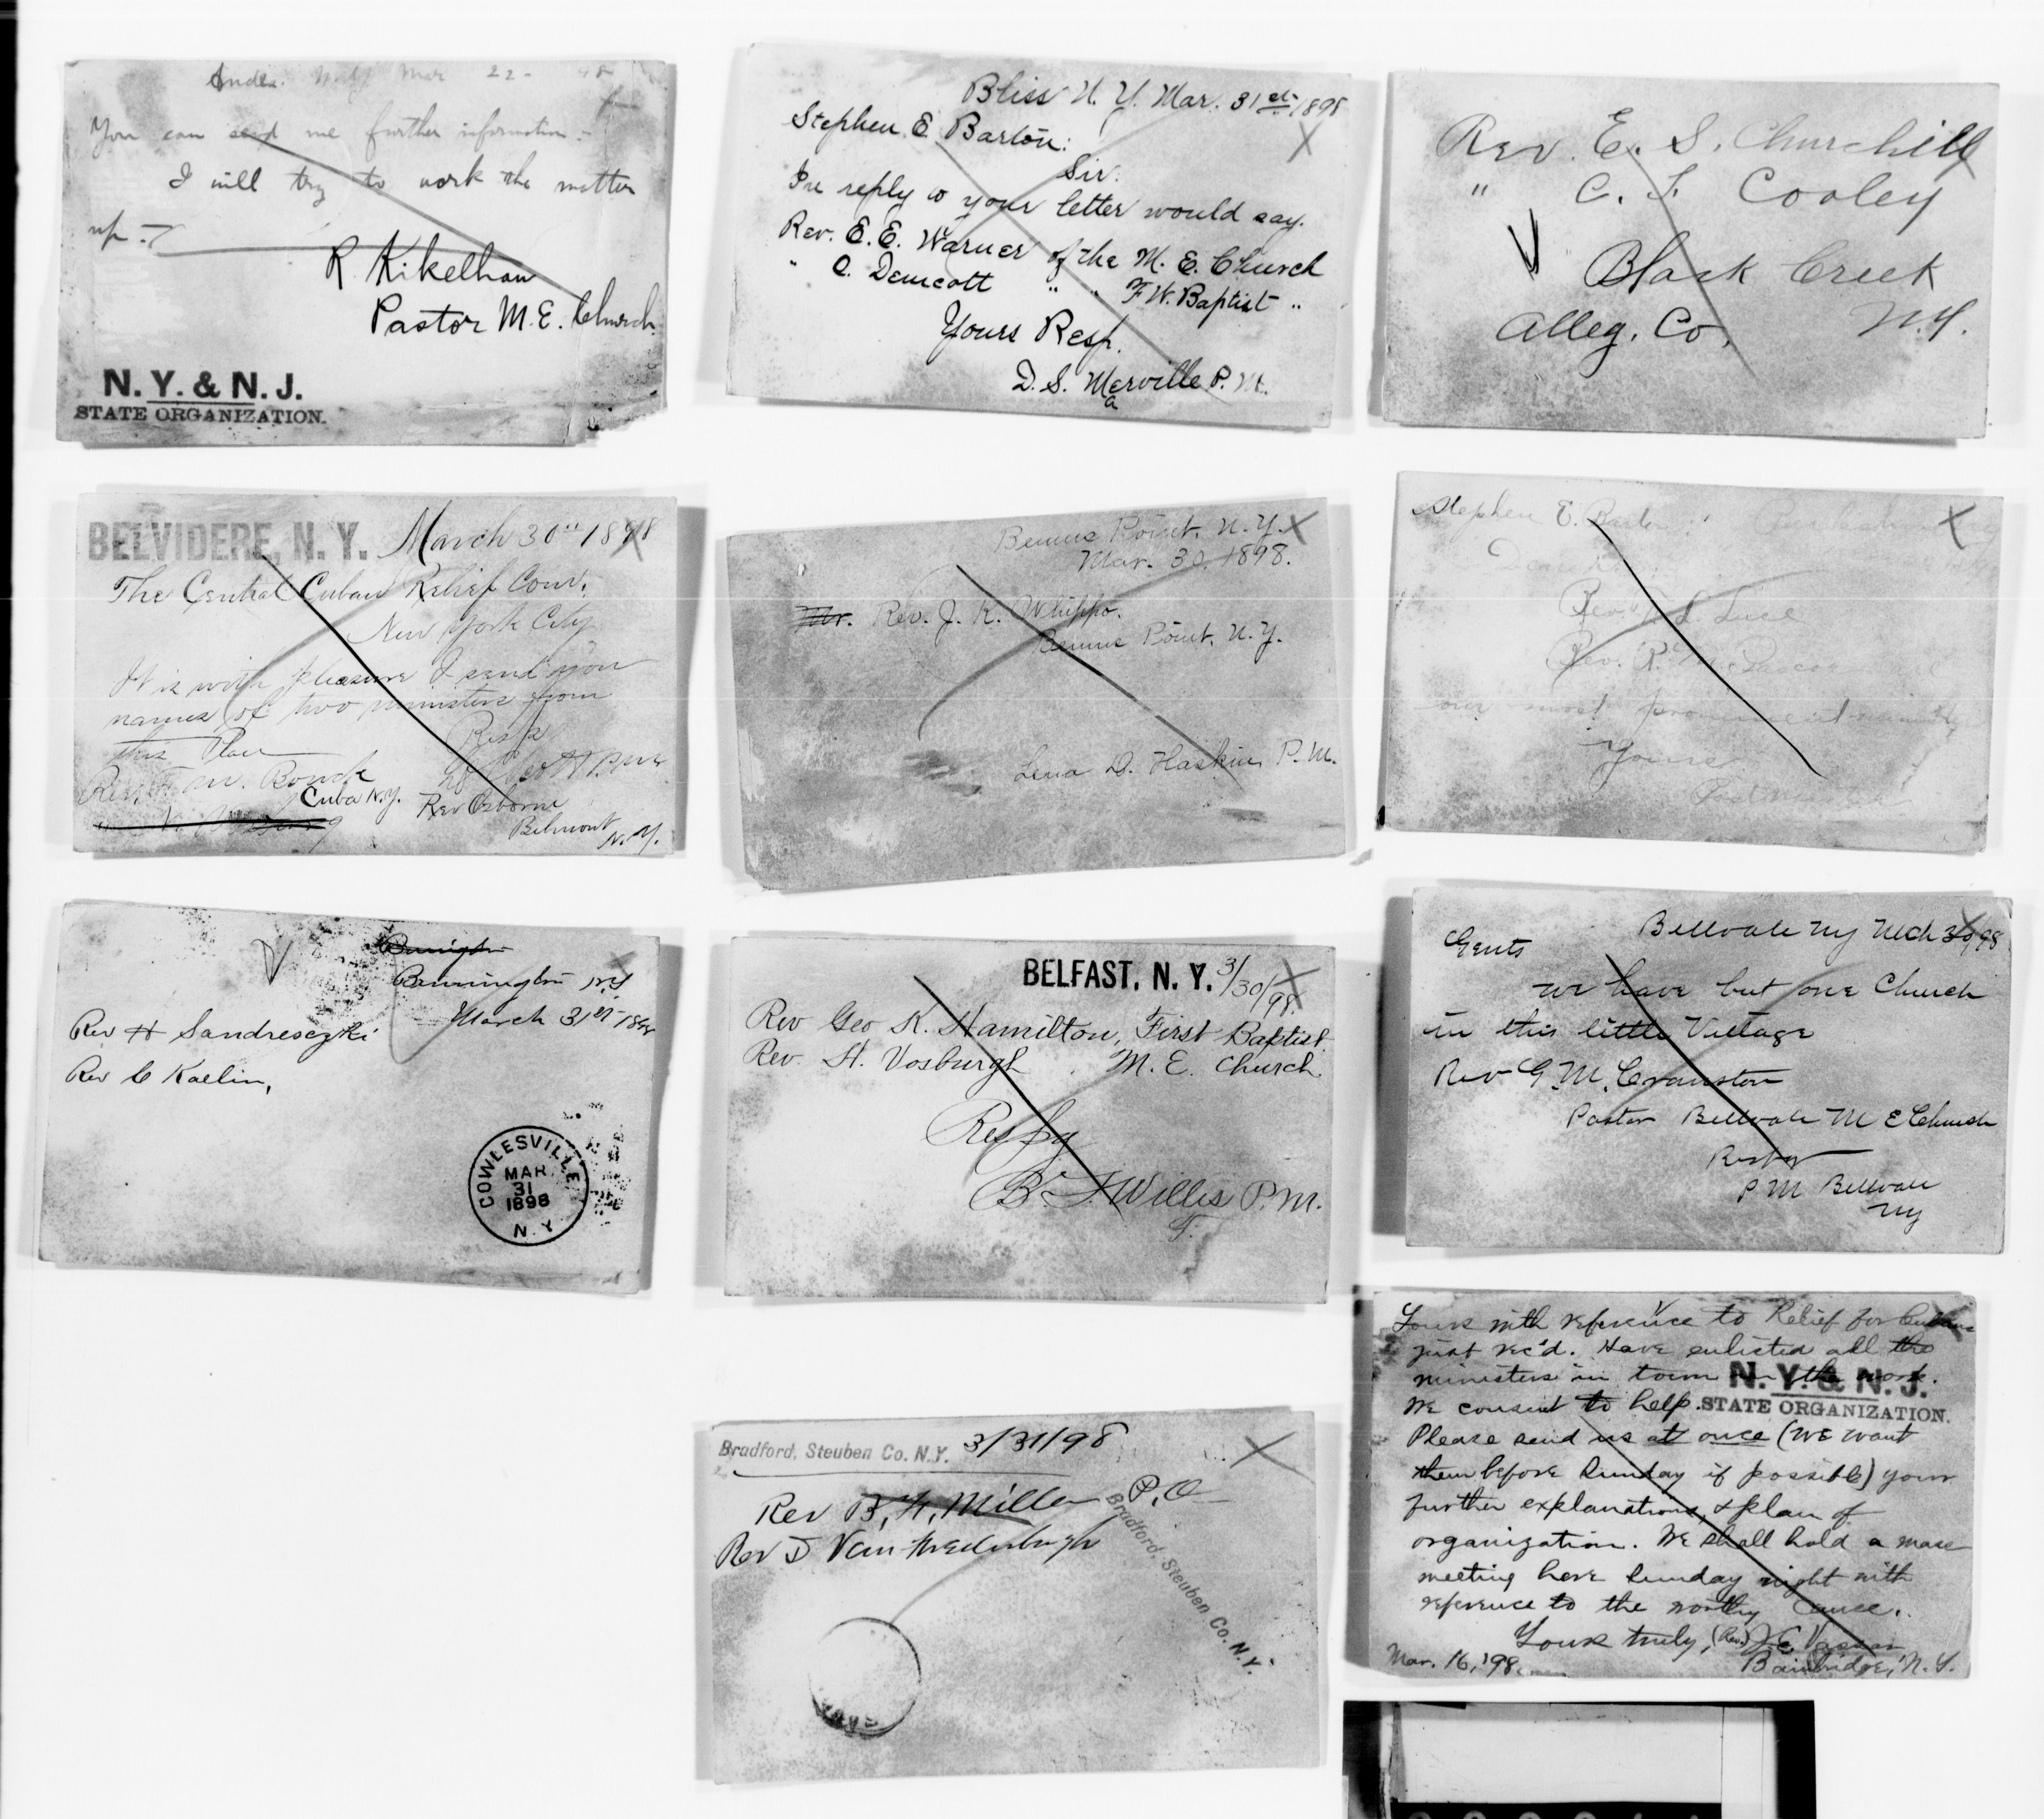 Mar 22- 98
You can send me further information -
I will try to work the matter
up -
R. Kikelhan
Pastor M.E. Church.
N. Y. & N. J.
STATE ORGANIZATION.
Bliss N. Y. Mar. 31st 1898
Stephen E. Barton:
Sir:
In reply to your letter would say.
Rev. E. E. Warner of the M. E. Church
" C. Demcott " " F W. Baptist "
Yours Resp.
D. S. Merville P. M.
a
Rev. E. S. Churchill
" C. F. Cooley
Black Creek
Alleg. Co. N.Y.
BELVIDERE, N. Y. March 30" 1898
The Central Cuban Relief Com.
New York City
It is with pleasure I send you
names of two ministers from
this Place
Resp
Rev. F. M. Bouck
Cuba N.Y. Rev Osborne
Belmont
N.Y.
Bemus Point, N.Y.
Mar. 30, 1898.
Mr. Rev. J. K. Whippo.
Bemus Point, N.Y.
Lena D. Haskin P.M.
Stephen E. Barton
Dear Sir
Rev. L. Luce
Rev. R. M.
our most prominent
Yours
Postmaster
Bennington
Bennington N.Y
March 31st 1898
Rev H Sandresczki
Rev C Kaelin,
COWLESVILLE
MAR
31
1898
N. Y.
BELFAST, N. Y. 3/30/98
Rev Geo K. Hamilton, First Baptist
Rev. H. Vosburgh M. E. Church
Resfy
B. F. Willis P.M.
F.
Bellvale NY Mch 30, 98
Gents
we have but one Church
in this little Village
Rev G. M. Cranston
Pastor Bellvale M E Church
P M Bellvale
NY
Bradford, Steuben Co. N.Y. 3/31/98
Rev B, F, Miller P.O
Rev D
Bradford, Steuben Co. N.Y.
Yours with reference to Relief for Cubans
just rec'd. Have enlisted all the
ministers in town in the work.
We consent to help.
N. Y. & N. J.
STATE ORGANIZATION.
Please send us at once (we want
them before Sunday if possible) your
further explanations & plan of
organization. We shall hold a mass
meeting here Sunday night with
reference to the worthy cause.
Yours truly, (Rev.) J. E. Vassar
Mar. 16, '98. Bainbridge, N. Y.